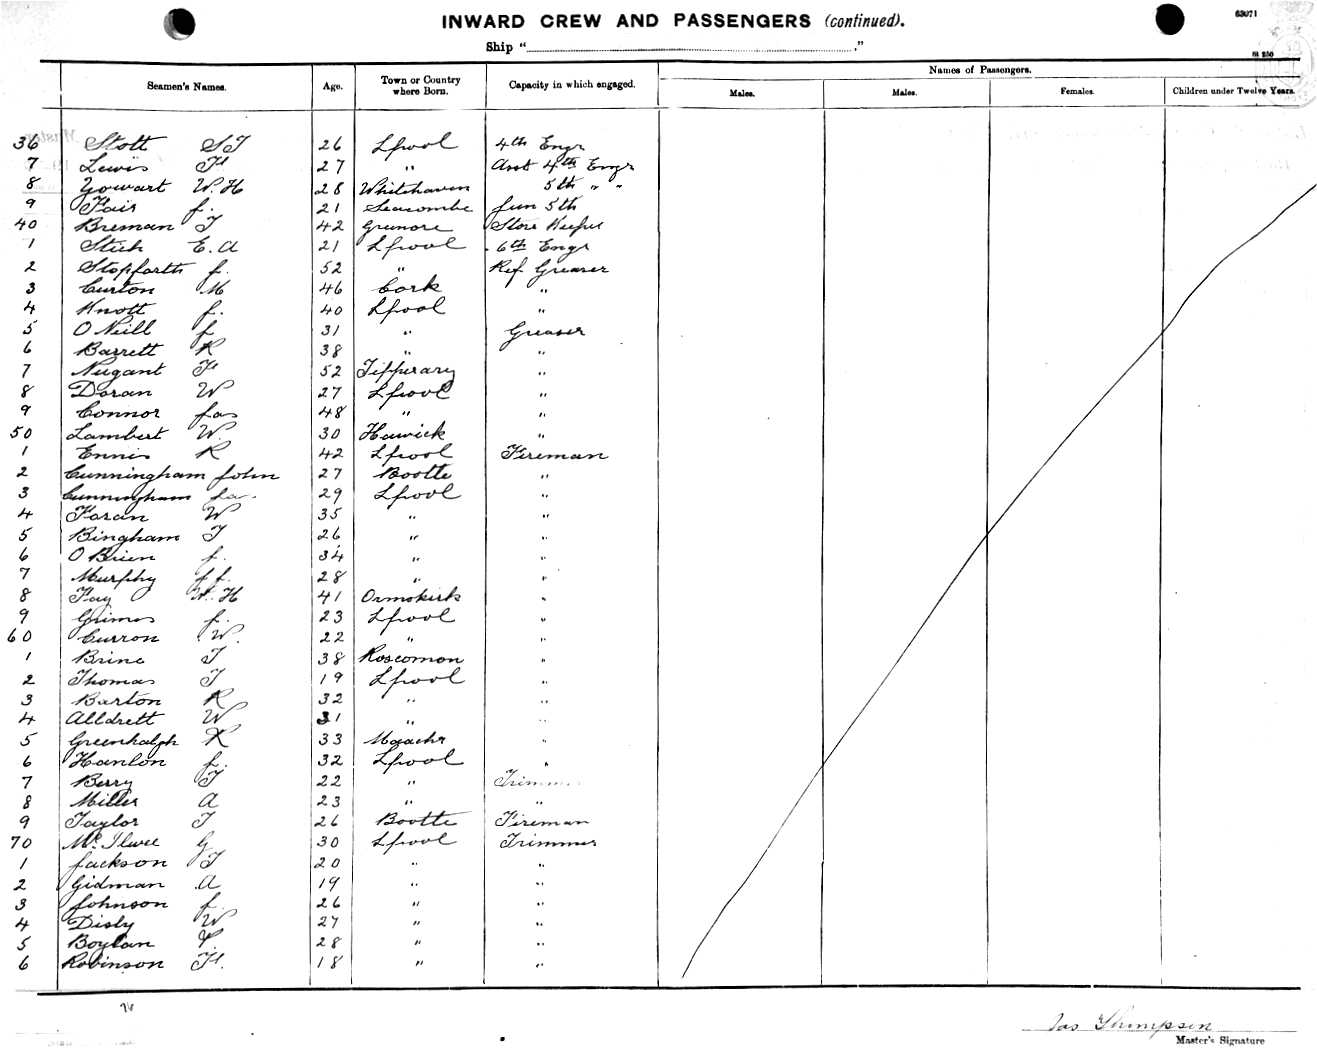 INWARD CREW AND PASSENGERS (continued).
63071
Ship " ."
Seamen's Names. Age. Town or Country where Born. Capacity in which engaged. Names of Passengers.
Males. Males. Females. Children under Twelve Years.
36 Stott S T 26 Lpool 4th Engr
7 Lewis F 27 " Asst 4th Engr
8 Yowart W. H 28 Whitehaven 5th " "
9 Fair J. 21 Seacombe Jun 5th
40 Breman T 42 Greenore Store Keeper
1 Stich E. A 21 Lpool 6th Engr
2 Stopforth J. 52 " Ref. Greaser
3 Curton M 46 Cork "
4 Knott J. 40 Lpool "
5 O Neill J 31 " Greaser
6 Barrett R 38 " "
7 Nugant F 52 Tipperary "
8 Doran W 27 Lpool "
9 Connor Jas 48 " "
50 Lambert W. 30 Hawick "
1 Ennis R 42 Lpool Fireman
2 Cunningham John 27 Bootle "
3 Cunningham Jas. 29 Lpool "
4 Foran W 35 " "
5 Bingham T 26 " "
6 O Brien J. 34 " "
7 Murphy J. J. 28 " "
8 Fay W. H 41 Ormskirk "
9 Grimes J. 23 Lpool "
60 Curron W. 22 " "
1 Brine T 38 Roscomon "
2 Thomas T 19 Lpool "
3 Barton R 32 " "
4 Alldrett W 31 " "
5 Greenhalgh R 33 "
6 Hanlon J. 32 Lpool "
7 Berry T 22 " Trimmer
8 Miller A 23 " "
9 Taylor T 26 Bootle Fireman
70 G 30 Lpool Trimmer
1 Jackson T 20 " "
2 Gidman A 19 " "
3 Johnson J. 26 " "
4 Disly W 27 " "
5 Boylan P. 28 " "
6 Robinson F. 18 " "
Jas Thompson
Master's Signature